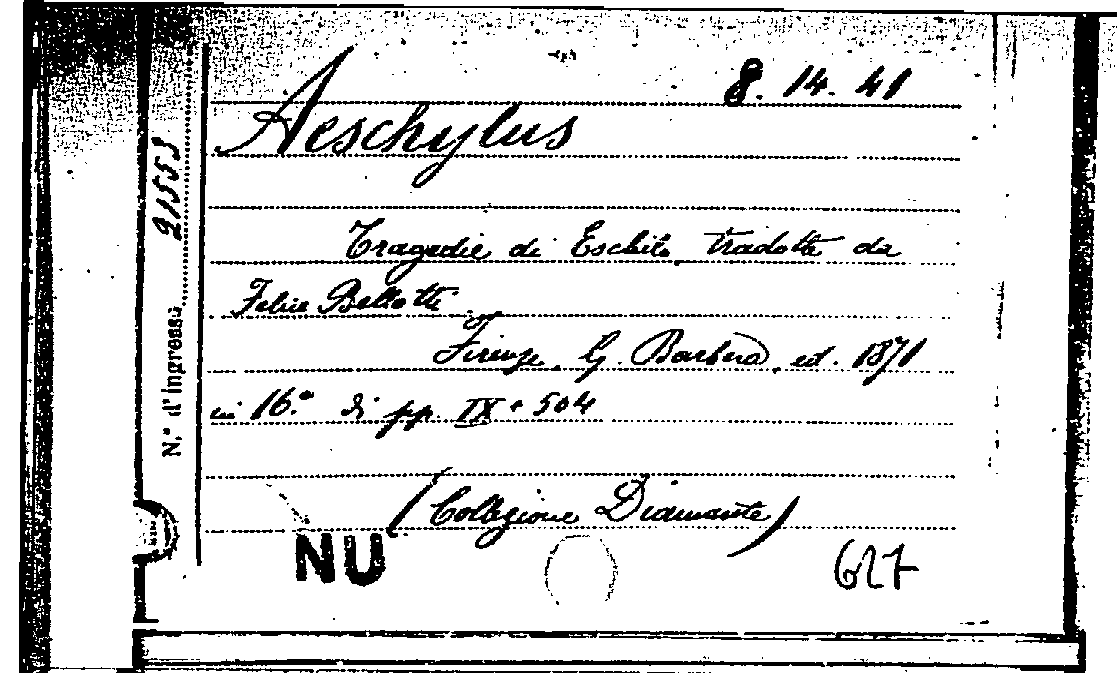 8. 14. 41
Aeschylus
Tragedie di Eschilo, tradotte da
Felice Bellotti
Firenze, G. Barbèra, ed. 1871
in 16.° di pp. IX + 504
(Collezione Diamante)
NU
627
N.° d'ingresso 21553